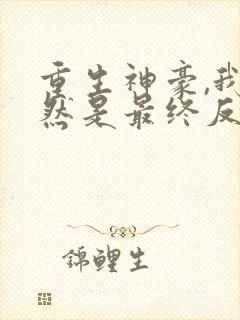 重生神豪,我
然是最终反
錦鲤生